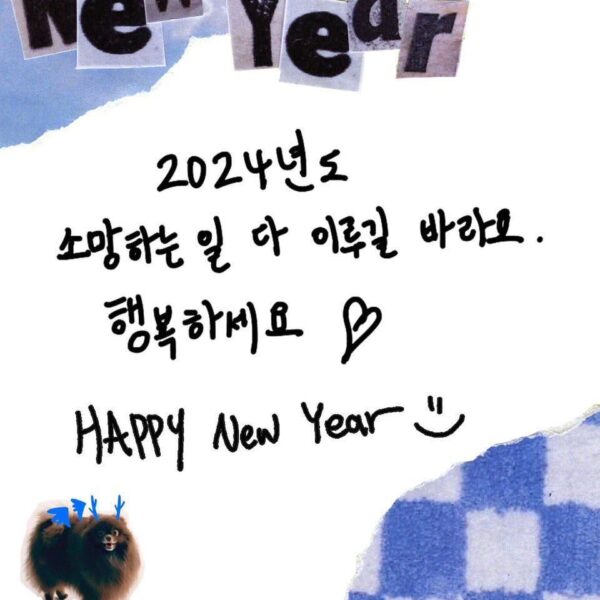 New Year
2024년도
소망하는 일 다 이루길 바라요.
행복하세요
HAPPY New Year